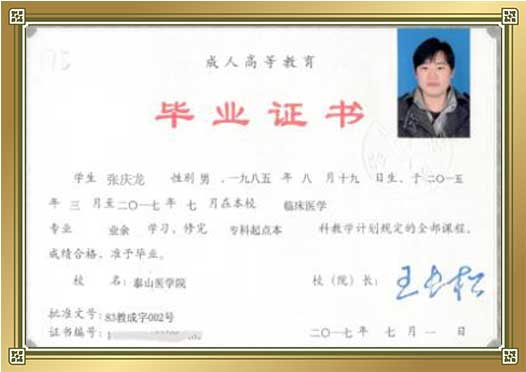 成人高等教育
毕业证书
学生 张庆龙 性别 男,一九八五年 八 月十九 日生,于二〇一五
年 三 月至二〇一七年 七 月在本校 临床医学
专业 业余 学习,修完 专科起点本 科教学计划规定的全部课程,
成绩合格,准予毕业。
校 名:泰山医学院 校(院)长:
批准文号:83教成字002号
证书编号:1 二〇一七年 七 月 一 日